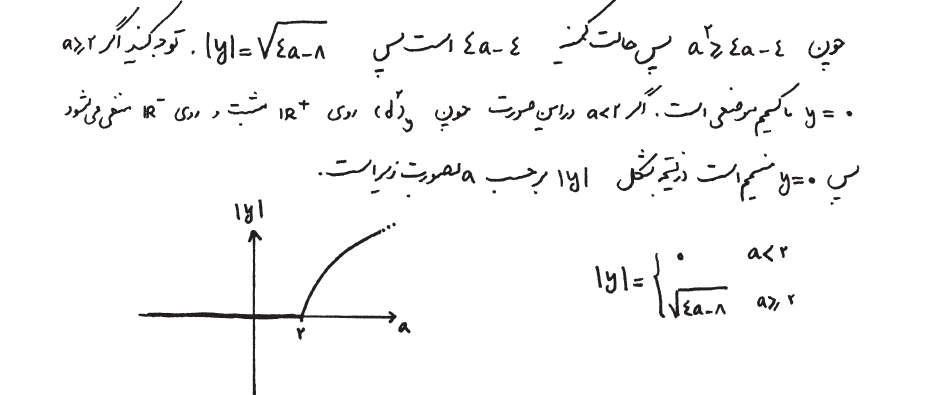 چون a²≥٤a-٤ پس حالت کمینه ٤a-٤ است پس |y|=√٤a-٨ . توجه کنید اگر a≥۲
y=۰ ماکسیمم موضعی است. اگر a<۲ در این صورت چون (d²)'y روی IR⁺ مثبت و روی IR⁻ منفی می‌شود
پس y=۰ مینیمم است در نتیجه شکل |y| برحسب a بصورت زیر است.
|y|
a
۲
|y|={
۰ a<۲
√٤a-٨ a≥۲